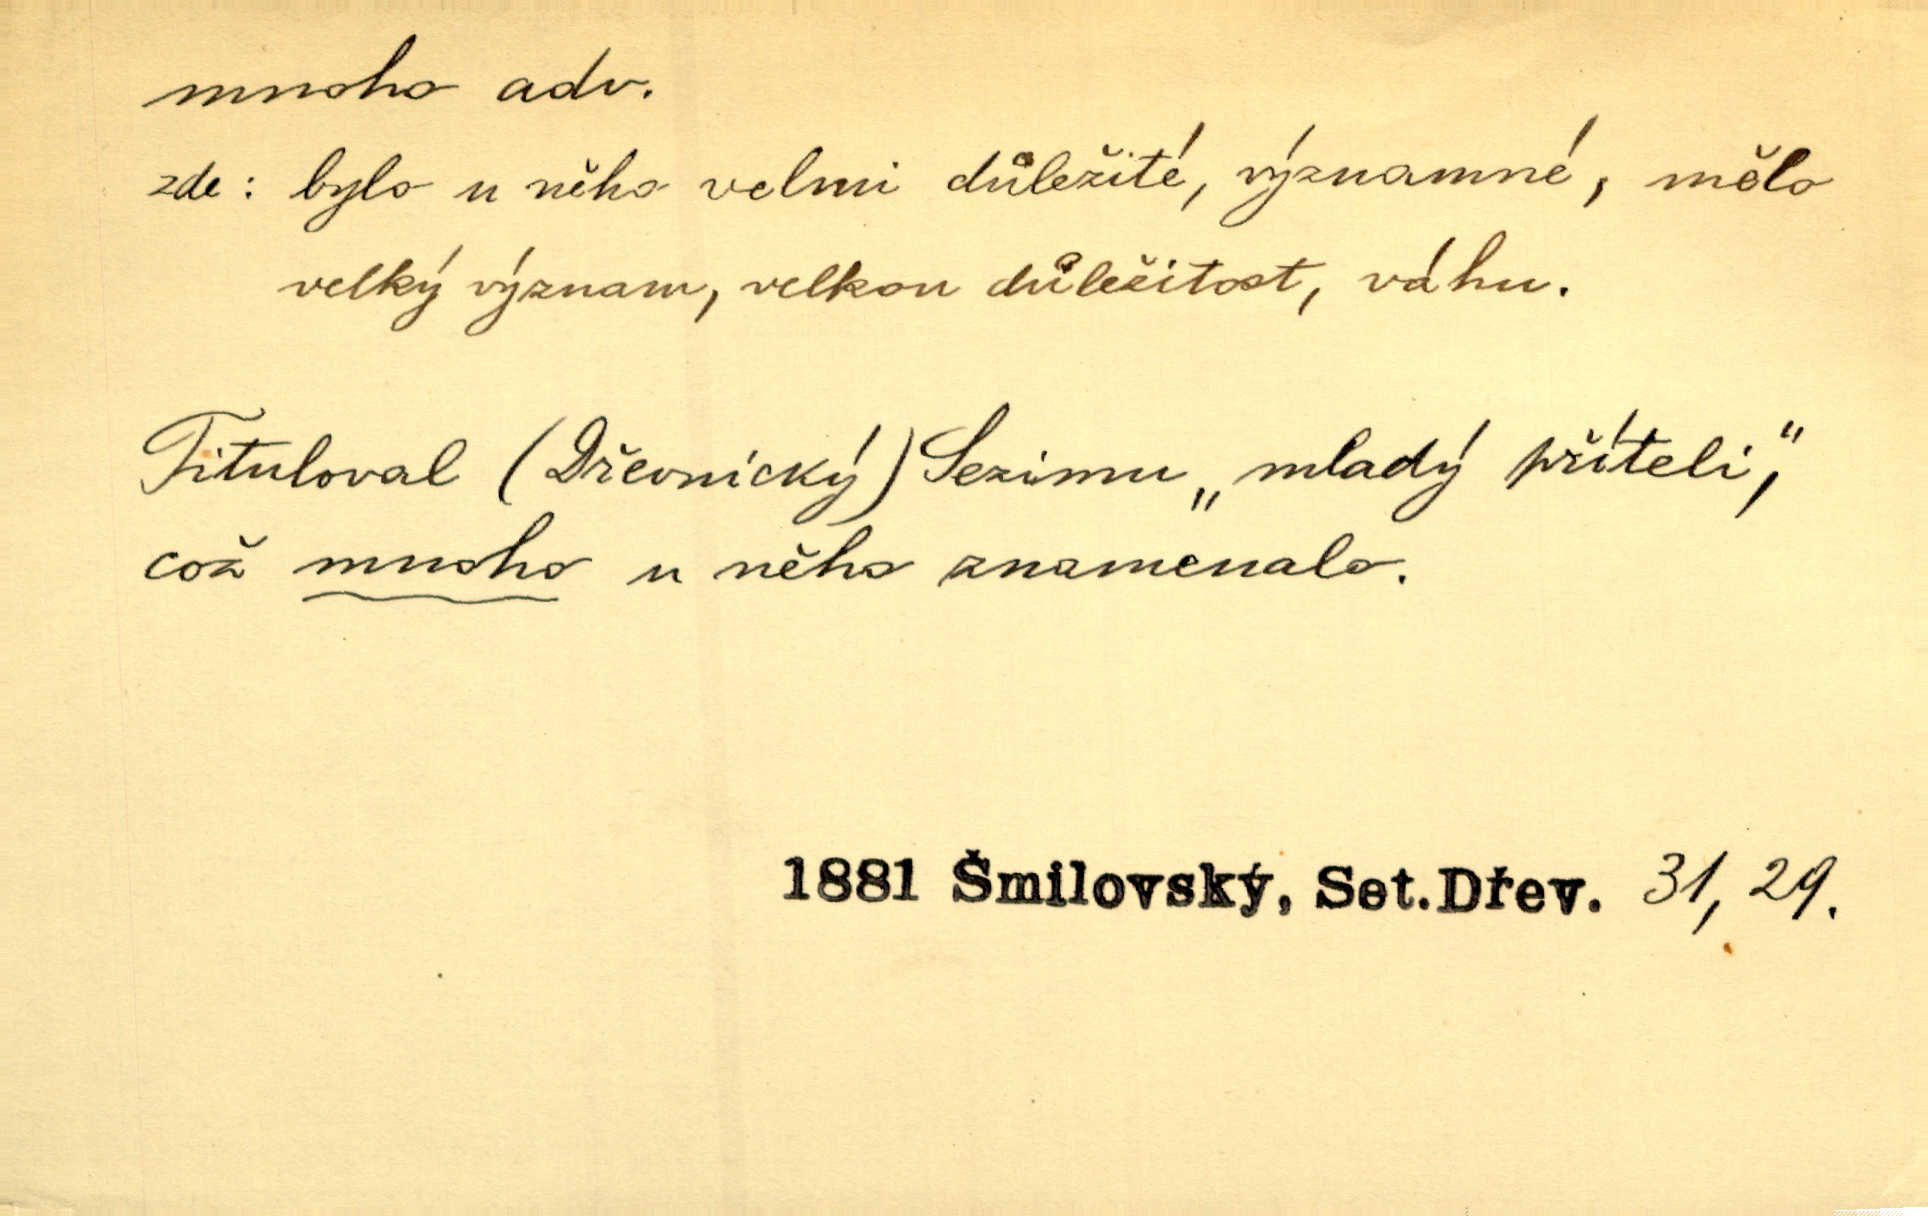 mnoho adv.
zde: bylo u něho velmi důležité, významné, mělo
velký význam, velkou důležitost, váhu.
Tituloval (Dřevnický) Sezimu „mladý příteli“,
což mnoho u něho znamenalo.
1881 Šmilovský, Set.Dřev. 31, 29.